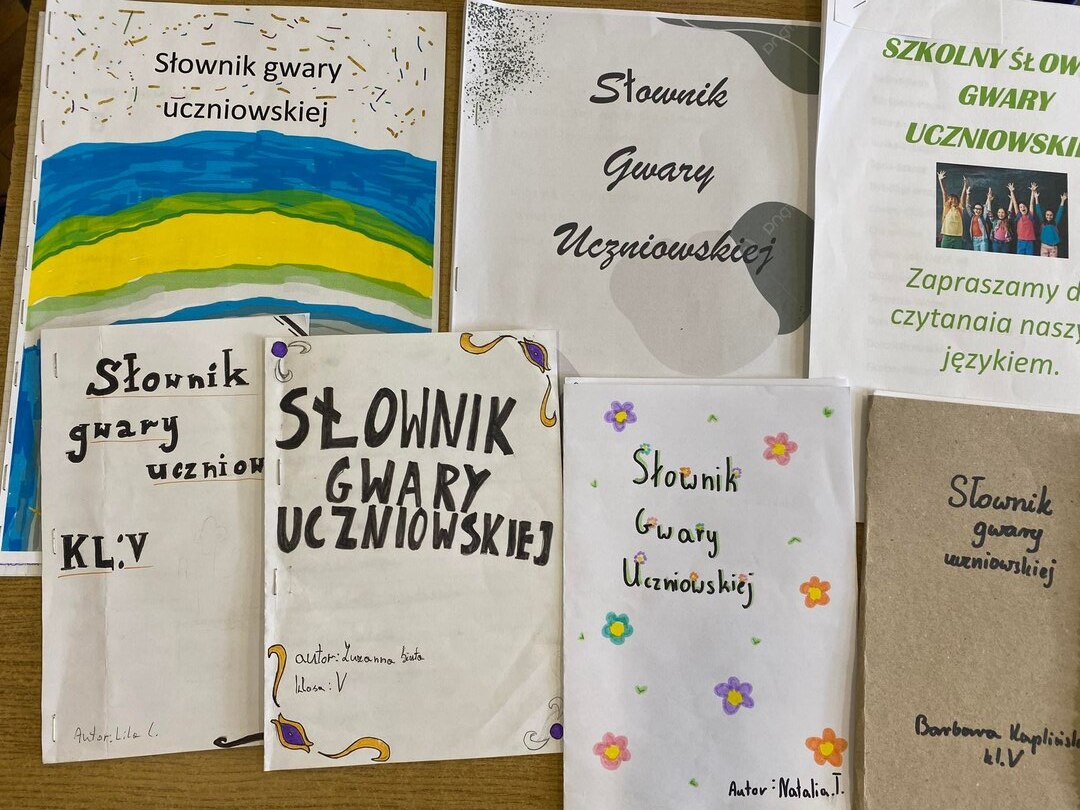 Słownik gwary
uczniowskiej
Słownik
Gwary
Uczniowskiej
png
png
SZKOLNY SŁOW
GWARY
UCZNIOWSKI
Zapraszamy d
czytanaia naszy
językiem.
Słownik
gwary
uczniow
KL:V
Autor: Lila L.
SŁOWNIK
GWARY
UCZNIOWSKIEJ
autor: Zuzanna
klasa: V
Słownik
Gwary
Uczniowskiej
Autor: Natalia.T.
Słownik
gwary
uczniowskiej
Barbara Kaplińsk
kl.V